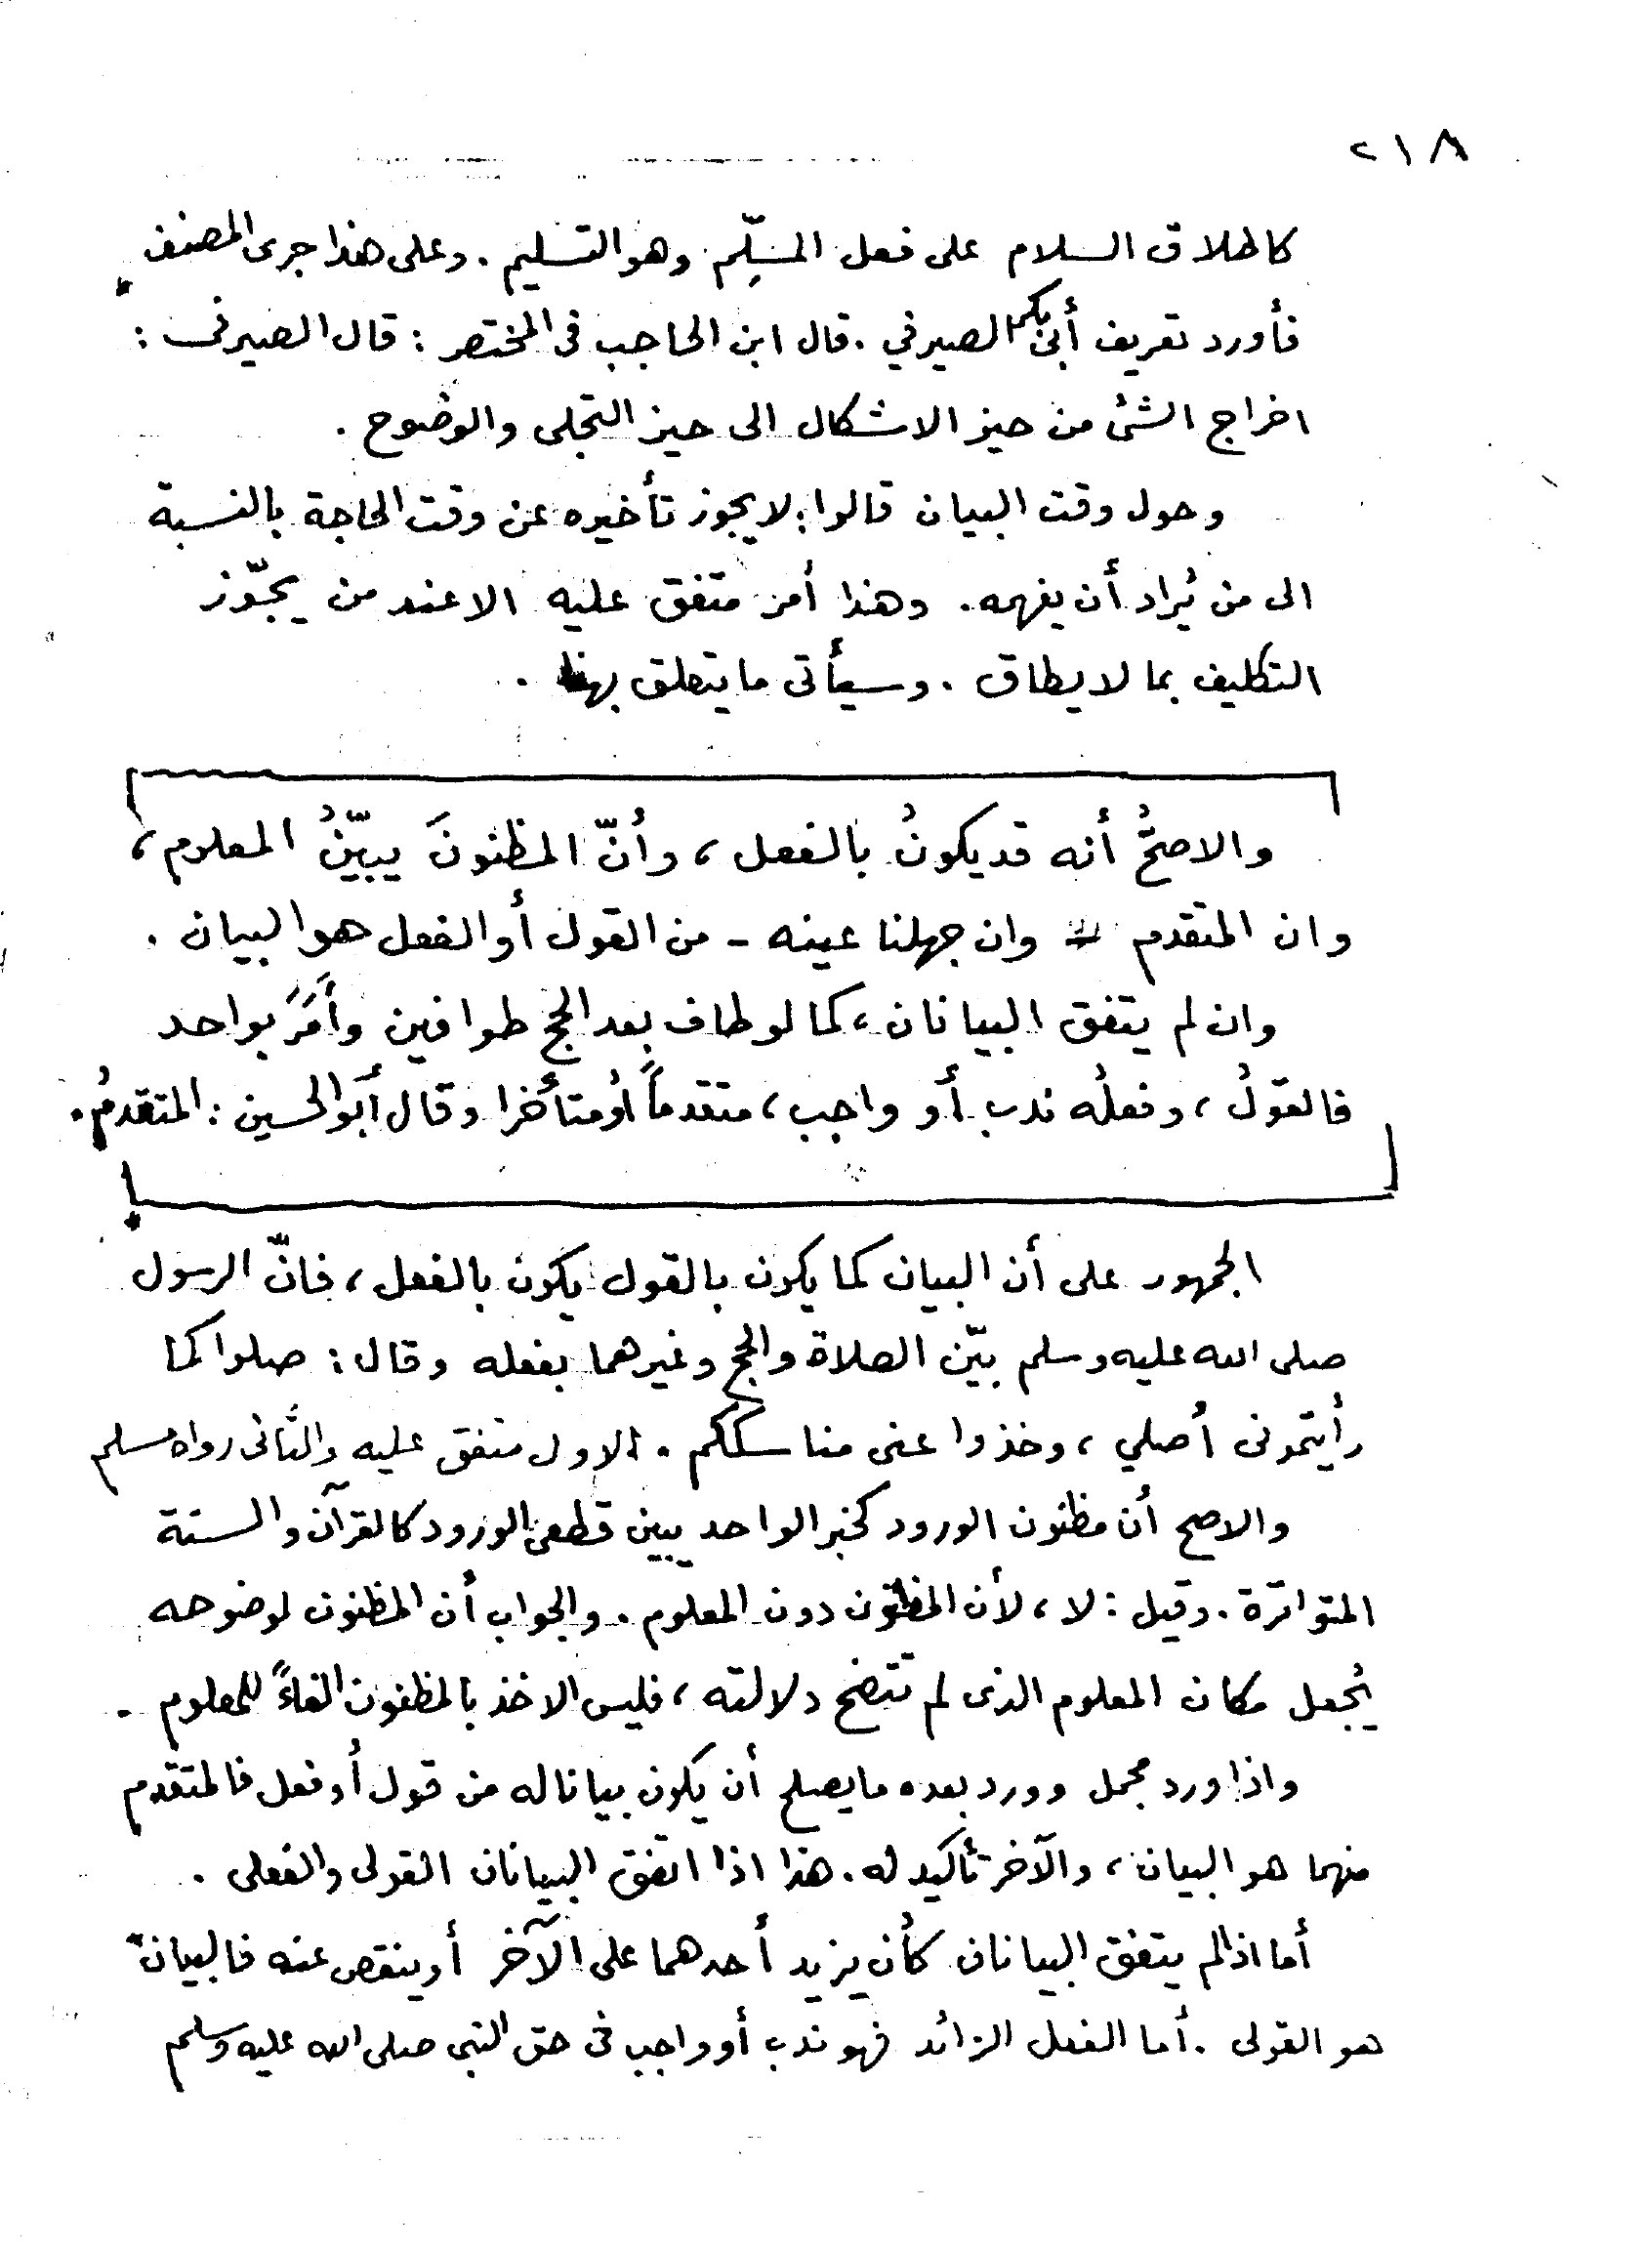 ٢١٨
كاطلاق السلام على فعل المسلِّم وهو التسليم . وعلى هذا جرى المصنف
فأورد تعريف أبى بكر الصيرفي . قال ابن الحاجب فى المختصر : قال الصيرفى :
اخراج الشئ من حيز الاشكال الى حيز التجلى والوضوح .
وحول وقت البيان قالوا : لا يجوز تأخيره عن وقت الحاجة بالنسبة
الى من يُراد أن يفهمه . وهذا أمر متفق عليه الا عند من يجوّز
التكليف بما لا يطاق . وسيأتى ما يتعلق بهذا .
والاصحُّ أنه قد يكونُ بالفعل ، وأنّ المظنونَ يبيّنُ المعلوم ،
وان المتقدم - وان جهلنا عينه - من القول أو الفعل هو البيان .
وان لم يتفق البيانان ، كما لو طاف بعد الحج طوافين وأَمَرَ بواحد
فالقولُ ، وفعلُه ندب أو واجب ، متقدماً أو متأخرا وقال أبو الحسين : المتقدمُ .
الجمهور على أن البيان كما يكون بالقول يكون بالفعل ، فانّ الرسول
صلى الله عليه وسلم بيّن الصلاة والحج وغيرهما بفعله وقال : صلوا كما
رأيتمونى أصلي ، وخذوا عنى مناسككم . الاول متفق عليه والثانى رواه مسلم
والاصح أن مظنون الورود كخبر الواحد يبين قطعى الورود كالقرآن والسنة
المتواترة . وقيل : لا ، لأن المظنون دون المعلوم . والجواب أن المظنون لوضوحه
يُجعل مكان المعلوم الذى لم تتضح دلالته ، فليس الاخذ بالمظنون الغاءً للمعلوم .
واذا ورد مجمل وورد بعده ما يصلح أن يكون بيانا له من قول أو فعل فالمتقدم
منهما هو البيان ، والآخر تأكيد له . هذا اذا اتفق البيانان القولى والفعلى .
أما اذا لم يتفق البيانان كأن يزيد أحدهما على الآخر أو ينقص عنه فالبيان
هو القولى . أما الفعل الزائد فهو ندب أو واجب فى حق النبى صلى الله عليه وسلم